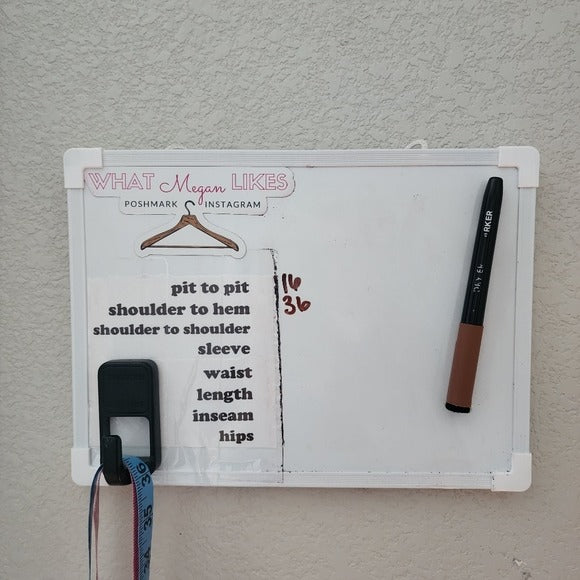 WHAT Megan LIKES
POSHMARK INSTAGRAM
pit to pit 16
shoulder to hem 36
shoulder to shoulder
sleeve
waist
length
inseam
hips
36
35